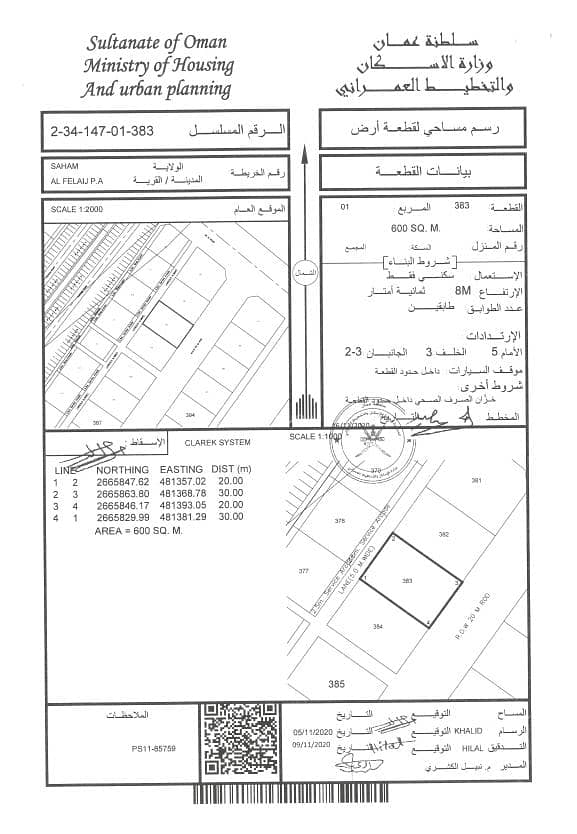 Sultanate of Oman
Ministry of Housing
And urban planning
سلطنة عمان
وزارة الاسكان
والتخطيط العمراني
2-34-147-01-383 الرقم المسلسل
رسم مساحي لقطعة أرض
SAHAM الولاية
AL FELAIJ P.A المدينة / القرية
رقم الخريطة
بيانات القطعة
SCALE 1:2000 الموقع العام
القطعة 383 المربع 01
المساحة 600 SQ. M.
رقم المنزل السكة المجمع
شروط البناء
الإستعمال سكني فقط
الإرتفاع 8M ثمانية أمتار
عدد الطوابق طابقين
الإرتدادات
الأمام 5 الخلف 3 الجانبان 3-2
موقف السيارات داخل حدود القطعة
شروط أخرى
خزان الصرف الصحي داخل حدود القطعة
المخطط التاريخ
الشمال
387
384
الإسقاط: CLAREK SYSTEM
SCALE 1:1000
LINE NORTHING EASTING DIST (m)
1 2 2665847.62 481357.02 20.00
2 3 2665863.80 481368.78 30.00
3 4 2665846.17 481393.05 20.00
4 1 2665829.99 481381.29 30.00
AREA = 600 SQ. M.
379
381
378
382
377
383
384
385
1
2
3
4
LANE(5.0 M.WIDE)
R.O.W 20 M. ROD
الملاحظات
PS11-85759
المساح التوقيع التاريخ
الرسام KHALID التوقيع التاريخ 05/11/2020
التدقيق HILAL التوقيع Hilal التاريخ 09/11/2020
المدير م. نبيل الكثري